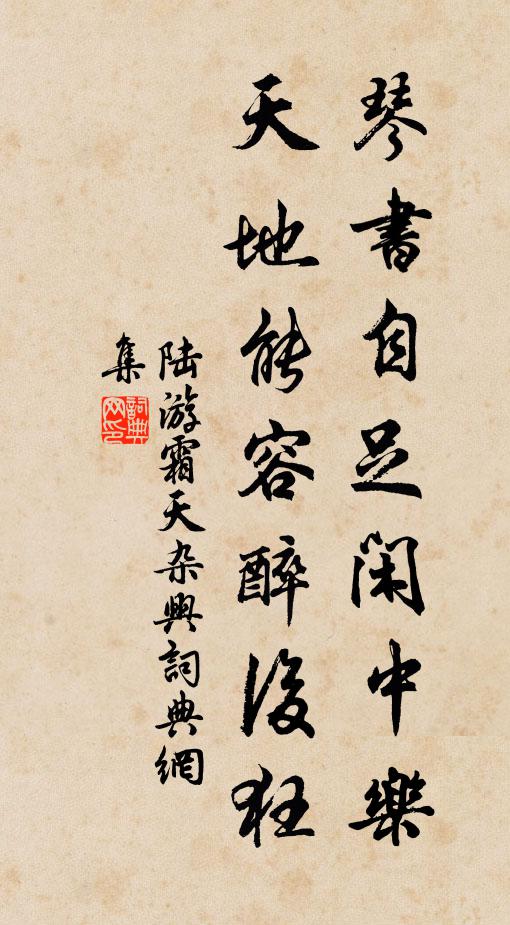 琴書自足閑中樂
天地能容醉後狂
陸游霜天杂興詞典網
集
詞典
网印